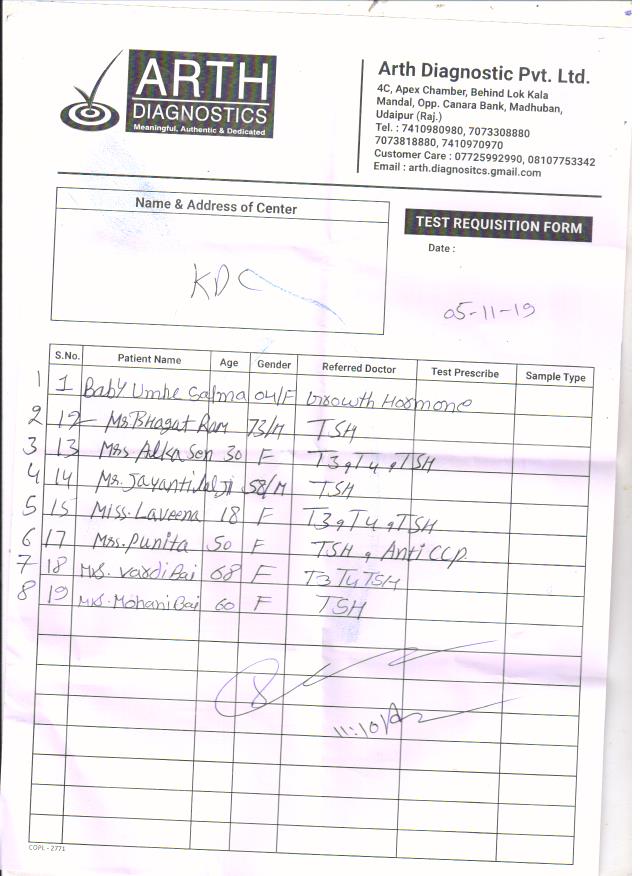 ARTH
DIAGNOSTICS
Meaningful, Authentic & Dedicated
Arth Diagnostic Pvt. Ltd.
4C, Apex Chamber, Behind Lok Kala
Mandal, Opp. Canara Bank, Madhuban,
Udaipur (Raj.)
Tel. : 7410980980, 7073308880
7073818880, 7410970970
Customer Care : 07725992990, 08107753342
Email : arth.diagnositcs.gmail.com
Name & Address of Center
KDC
TEST REQUISITION FORM
Date :
05-11-19
S.No. Patient Name Age Gender Referred Doctor Test Prescribe Sample Type
1 1 Baby Umme Salma 04/F Growth Hormone
2 12 Mr. Bhagat Ram 73/M TSH
3 13 Mrs Alka Sen 30 F T3, T4, TSH
4 14 Mr. Jayantilal Ji 58/M TSH
5 15 Miss. Laveena 18 F T3, T4, TSH
6 17 Mrs. Punita 50 F TSH, Anti CCP
7 18 Mrs. Vardi Bai 68 F T3 T4 TSH
8 19 Mrs. Mohani Bai 60 F TSH
8
COPL - 2771